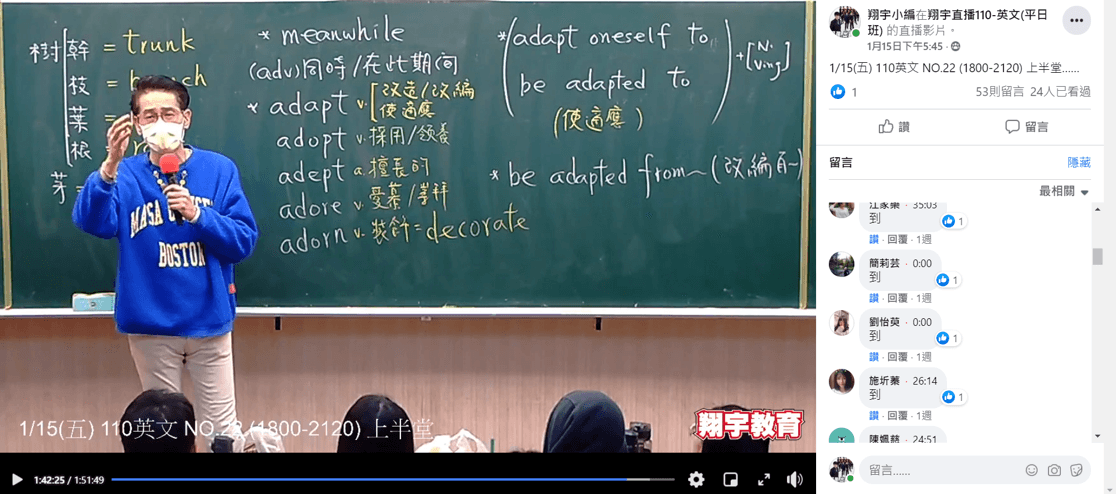 樹
幹 = trunk
枝 =
葉
根
芽 =
* meanwhile
(adv)同時/在此期间
* adapt v. 改造/改編
使適應
adopt v. 採用/領養
adept a. 擅長的
adore v. 愛慕/崇拜
adorn v. 裝飾 = decorate
*(adapt oneself to
be adapted to
(使適應)
+[N.
Ving]
* be adapted from~(改編自~)
BOSTON
1/15(五) 110英文 NO.22 (1800-2120) 上半堂
翔宇教育
1:42:25 / 1:51:49
翔宇小編在翔宇直播110-英文(平日
班) 的直播影片。
1月15日下午5:45
1/15(五) 110英文 NO.22 (1800-2120) 上半堂......
1
53則留言 24人已看過
讚 留言
留言 隱藏
最相關
35:03
到
1
讚 · 回覆 · 1週
簡莉芸 · 0:00
到
1
讚 · 回覆 · 1週
劉怡萸 · 0:00
到
1
讚 · 回覆 · 1週
施圻蓁 · 26:14
到
1
讚 · 回覆 · 1週
24:51
留言......